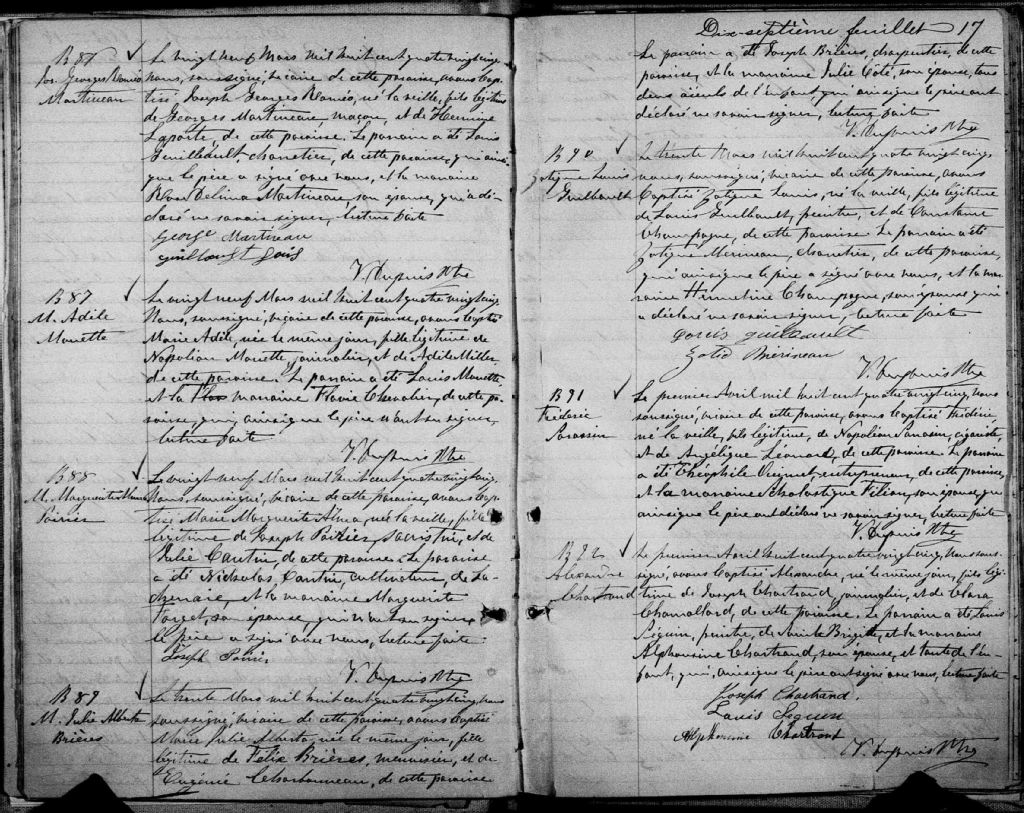 B 87
Jos. Georges Roméo
Martineau
Le vingt neuf Mars mil huit cent quatre vingt cinq
Nous, soussigné, vicaire de cette paroisse, avons bap-
tisé Joseph Georges Roméo, né la veille, fils légitime
de Georges Martineau, maçon, et de Hermine
Laporte, de cette paroisse. Le parrain a été Louis
Guilbault, charretier, de cette paroisse, qui ainsi
que le père a signé avec nous, et la marraine
Rose Delima Martineau, son épouse, qui a dé-
claré ne savoir signer, lecture faite
George Martineau
V. Dupuis Ptre
B 87
M. Adile
Monette
Le vingt neuf Mars mil huit cent quatre vingt cinq
Nous, soussigné, vicaire de cette paroisse, avons baptisé
Marie Adile, née le même jour, fille légitime de
Napoléon Monette, journalier, et de Adile Miller
de cette paroisse. Le parrain a été Louis Monette
et la marraine Flavie Chevalier, de cette pa-
roisse, qui, ainsi que le père n'ont su signer,
lecture faite
V. Dupuis Ptre
B 88
M. Marguerite Alma
Poirier
Le vingt neuf Mars mil huit cent quatre vingt cinq
Nous, soussigné, vicaire de cette paroisse, avons bap-
tisé Marie Marguerite Alma, née la veille, fille
légitime de Joseph Poirier, sacristin, et de
Julie Cantin, de cette paroisse. Le parrain
a été Nicholas Cantin, cultivateur, de La-
chenaie, et la marraine Marguerite
Forget, son épouse, qui n'ont su signer
le père a signé avec nous, lecture faite.
Joseph Poirier
V. Dupuis Ptre
B 89
M. Julie Alberta
Brières
Le trente Mars mil huit cent quatre vingt cinq, nous
soussigné, vicaire de cette paroisse, avons baptisé
Marie Julie Alberta, née le même jour, fille
légitime de Félix Brières, menuisier, et de
Eugénie Charbonneau, de cette paroisse
Dix-septième feuillet 17
Le parrain a été Joseph Brières, charpentier, de cette
paroisse, et la marraine Julie Côté, son épouse, tous
deux aïeuls de l'enfant, qui ainsi que le père ont
déclaré ne savoir signer, lecture faite
V. Dupuis Ptre
B 90
Zotique Louis
Guilbault
Le trente Mars mil huit cent quatre vingt cinq
nous, soussigné, vicaire de cette paroisse, avons
baptisé Zotique Louis, né la veille, fils légitime
de Louis Guilbault, peintre, et de Constance
Champagne, de cette paroisse. Le parrain a été
Zotique Merineau, charretier, de cette paroisse,
qui ainsi que le père a signé avec nous, et la mar-
raine Champagne, son épouse qui
a déclaré ne savoir signer, lecture faite
V. Dupuis Ptre
B 91
Frédéric
Parassin
Le premier Avril mil huit cent quatre vingt cinq, nous
soussigné, vicaire de cette paroisse, avons baptisé Frédéric
né la veille, fils légitime, de Napoléon Parassin, cigariste,
et de Angélique Léonard, de cette paroisse. Le parrain
a été Théophile Viginet, entrepreneur, de cette paroisse,
et la marraine Scholastique Filion, son épouse, qui
ainsi que le père ont déclaré ne savoir signer, lecture faite
V. Dupuis Ptre
B 92
Alexandre
Chartrand
Le premier Avril huit cent quatre vingt cinq, Nous sous-
signé, avons baptisé Alexandre, né le même jour, fils légi-
time de Joseph Chartrand, journalier, et de Clara
de cette paroisse. Le parrain a été Louis
Séguin, peintre, de Sainte Brigitte, et la marraine
Alphonsine Chartrand, son épouse, et tante de l'en-
fant, qui, ainsi que le père ont signé avec nous, lecture faite
Joseph Chartrand
Louis Seguin
Alphonsine Chartrand
V. Dupuis Ptre